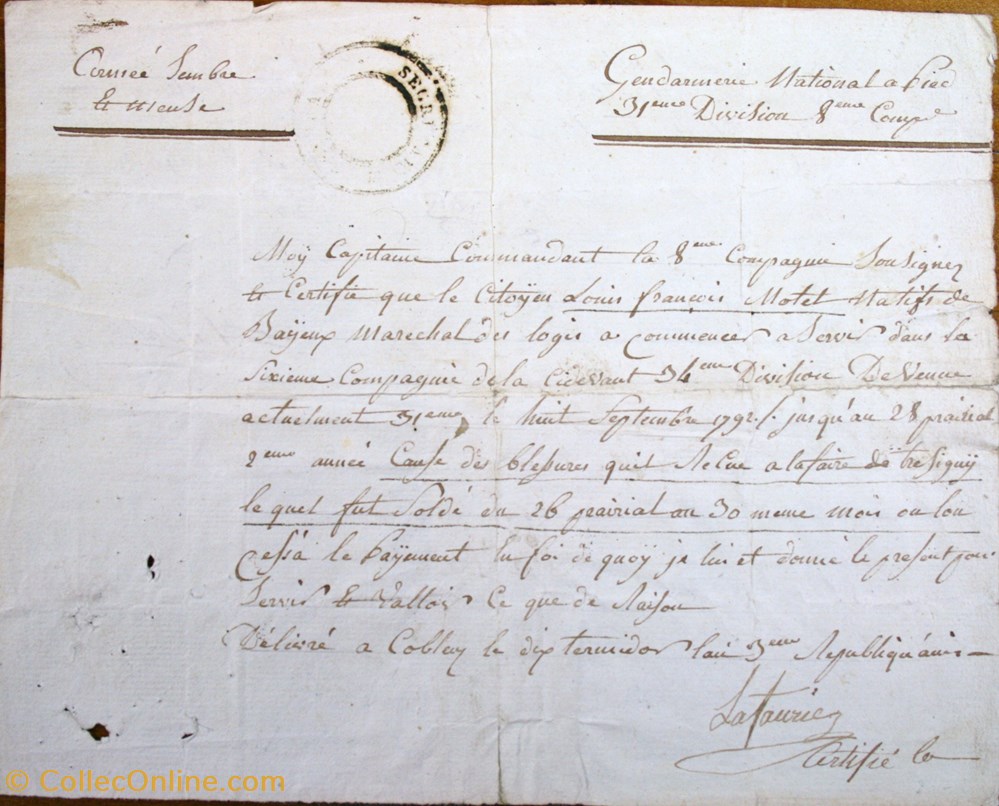 Armée Sembre
Et meuse
SECRETAIR
Gendarmerie National a Pied
31eme Division 8eme Compe
Moÿ Capitaine Commandant la 8eme Compagnie Sousignez
et Certifie que le Citoÿen Louis françois Motet Natifs de
Baÿeux Marechal des logis a commencer a Servir dans la
Sixieme Compagnie de la Cidevant 34eme Division De Venue
actuelment 31eme le huit Septembre 1792 jusqu'au 28 prairial
2eme année Cause des blessures quil Recue a lafaire de tresignÿ
le quel fut Soldé du 26 prairial au 30 meme mois ou lon
cessa le Paÿement En foi de quoÿ je lui et donné le present pour
Servir Et Valloir Ce que de Raison
Délivré a Coblens le dix termidor lan 3eme Republiquains
Lataurie
Certifié le
© CollecOnline.com